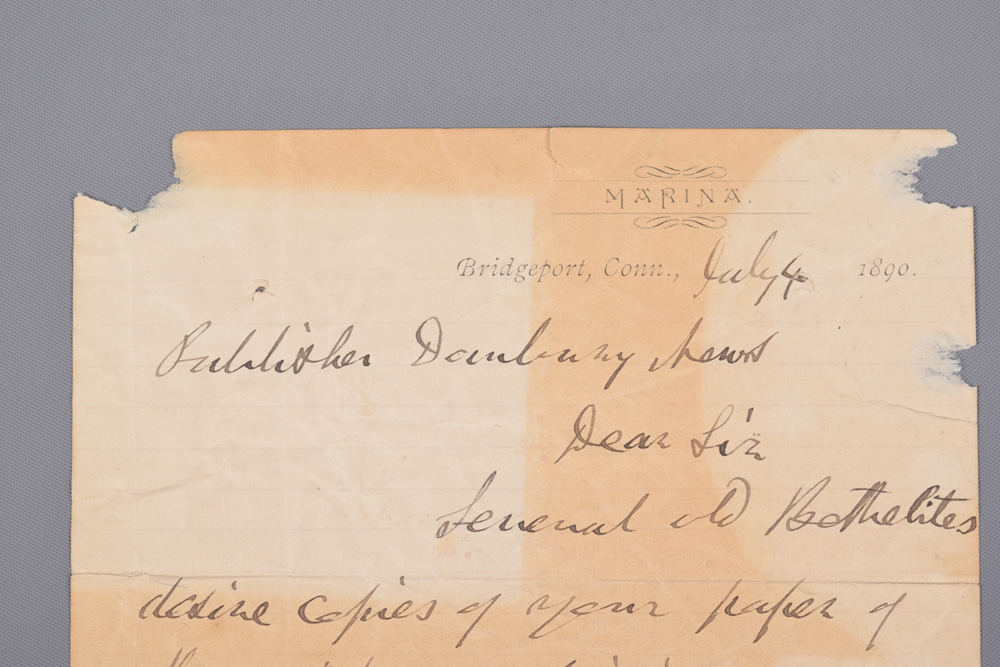 MARINA.
Bridgeport, Conn., July 4 1890.
Publisher Danbury News
Dear Sir
Several old Bethelites
desire copies of your paper of